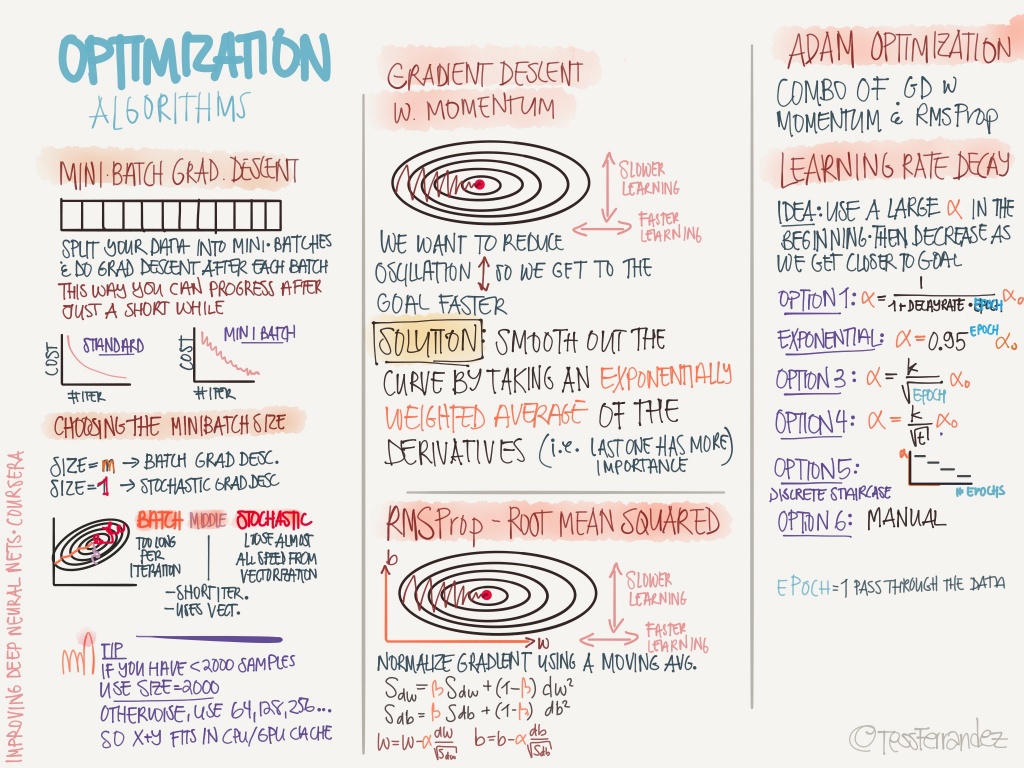 OPTIMIZATION
ALGORITHMS
MINI·BATCH GRAD. DESCENT
SPLIT YOUR DATA INTO MINI·BATCHES
& DO GRAD DESCENT AFTER EACH BATCH
THIS WAY YOU CAN PROGRESS AFTER
JUST A SHORT WHILE
COST
STANDARD
#ITER
COST
MINI BATCH
#ITER
CHOOSING THE MINIBATCH SIZE
SIZE=m → BATCH GRAD DESC.
SIZE=1 → STOCHASTIC GRAD DESC
BATCH MIDDLE STOCHASTIC
TOO LONG
PER
ITERATION
LOSE ALMOST
ALL SPEED FROM
VECTORIZATION
-SHORT ITER.
-USES VECT.
TIP
IF YOU HAVE <2000 SAMPLES
USE SIZE=2000
OTHERWISE, USE 64,128,256...
SO X+Y FITS IN CPU/GPU CACHE
IMPROVING DEEP NEURAL NETS · COURSERA
GRADIENT DESCENT
W. MOMENTUM
SLOWER
LEARNING
FASTER
LEARNING
WE WANT TO REDUCE
OSCILLATION ↕ SO WE GET TO THE
GOAL FASTER
SOLUTION: SMOOTH OUT THE
CURVE BY TAKING AN EXPONENTIALLY
WEIGHTED AVERAGE OF THE
DERIVATIVES (i.e. LAST ONE HAS MORE)
IMPORTANCE
RMSProp - ROOT MEAN SQUARED
b
w
SLOWER
LEARNING
FASTER
LEARNING
NORMALIZE GRADIENT USING A MOVING AVG.
S_dw = β S_dw + (1-β) dw²
S_db = β S_db + (1-β) db²
w=w-α dw/√S_dw b=b-α db/√S_db
ADAM OPTIMIZATION
COMBO OF GD W
MOMENTUM & RMSProp
LEARNING RATE DECAY
IDEA: USE A LARGE α IN THE
BEGINNING·THEN DECREASE AS
WE GET CLOSER TO GOAL
OPTION 1: α = 1/(1+DECAYRATE·EPOCH) α₀
EXPONENTIAL: α = 0.95^EPOCH α₀
OPTION 3: α = k/√EPOCH α₀
OPTION 4: α = k/√t α₀
OPTION 5:
DISCRETE STAIRCASE
α
# EPOCHS
OPTION 6: MANUAL
EPOCH = 1 PASS THROUGH THE DATA
©TessFerrandez